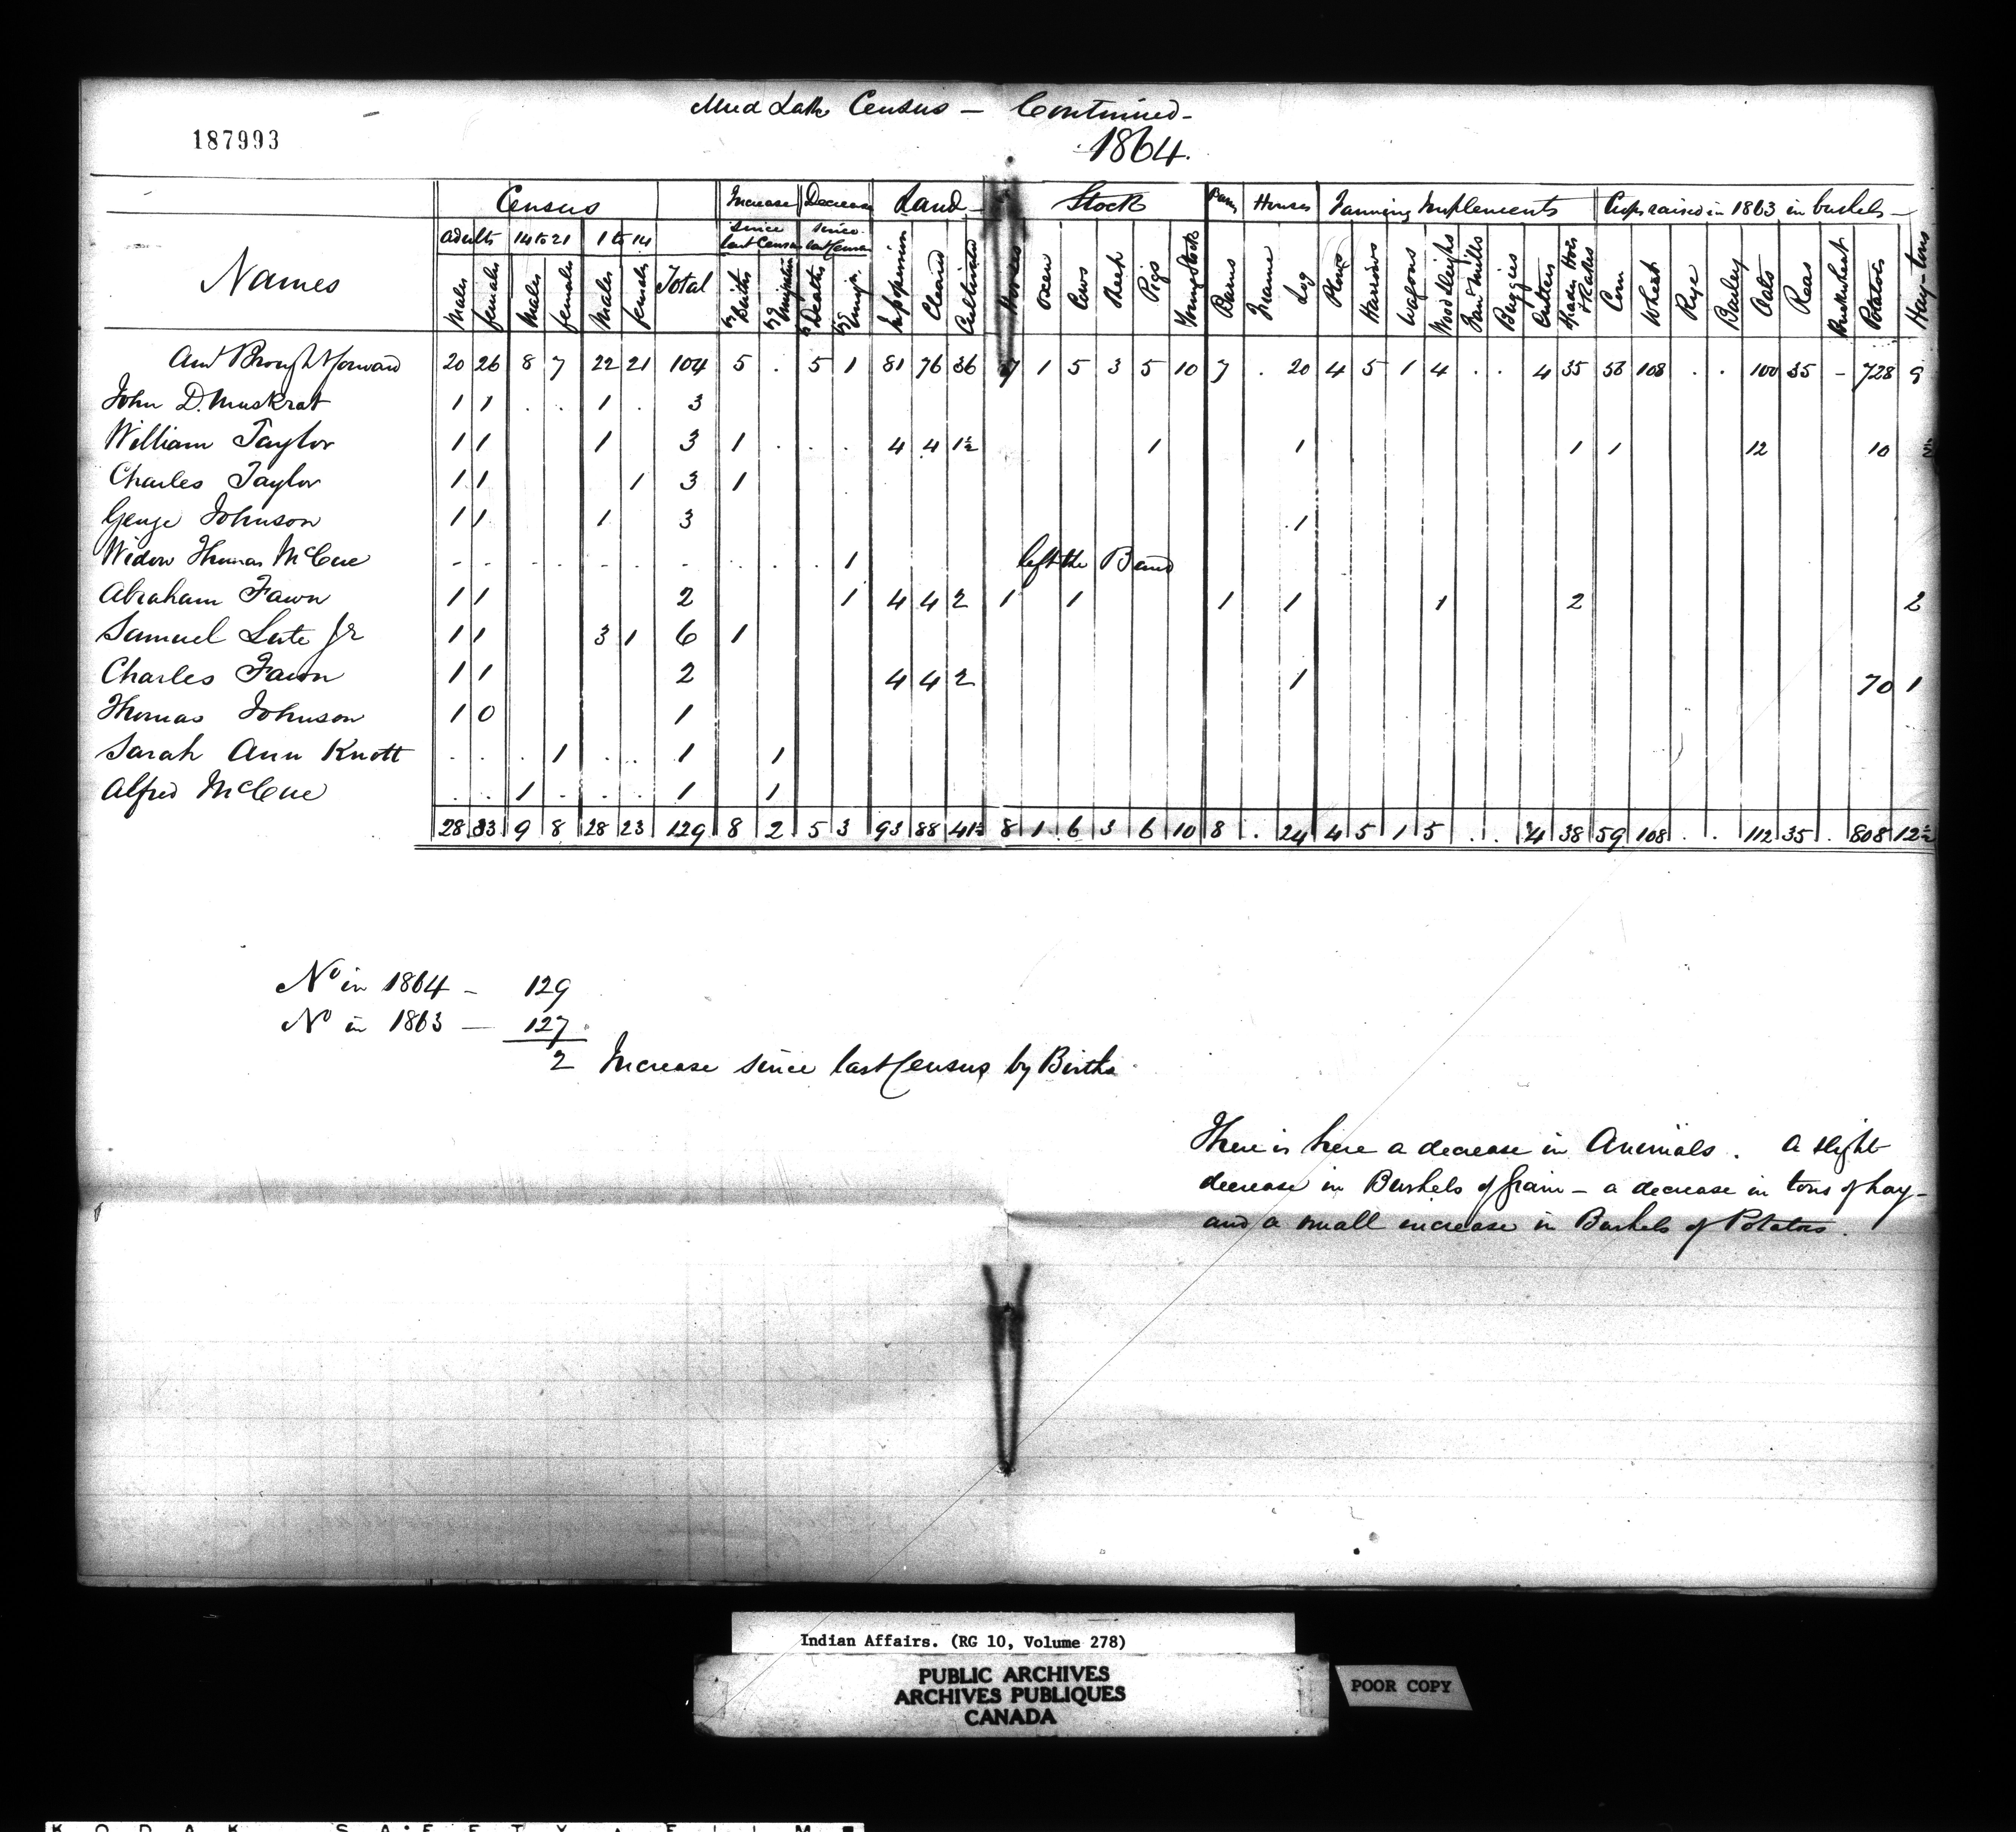 Mud Lake Census — Continued -
187993
1864.
Census Increase Decrease Land Stock Barns Houses Farming Implements Crops raised in 1863 in bushels —
adults 14 to 21 1 to 14 Since last Census since last Census
Names Males females Males females Males females Total by Births by Emigration by Deaths by Emign. In possession Cleared Cultivated Horses Oxen Cows Sheep Pigs Young Stock Barns Frame Log Plows Harrows Wagons Wood Sleighs Fan Mills Buggies Cutters Spades Hoes & Rakes Corn Wheat Rye Barley Oats Peas Buckwheat Potatoes Hay - tons
Amt Brought forward 20 26 8 7 22 21 104 5 . 5 1 81 76 36 7 1 5 3 5 10 7 . 20 4 5 1 4 . . 4 35 58 108 . . 100 35 - 728 9
John D. Muskrat 1 1 . . 1 . 3
William Taylor 1 1 1 3 1 . . . 4 4 1½ 1 1 1 1 12 10 ½
Charles Taylor 1 1 1 3 1
George Johnson 1 1 1 3 1
Widow Thomas McCue - . . . . . . . . . 1 left the Band
Abraham Fawn 1 1 2 1 4 4 2 1 1 1 1 1 2 2
Samuel Lute Jr 1 1 3 1 6 1
Charles Fawn 1 1 2 4 4 2 1 70 1
Thomas Johnson 1 0 1
Sarah Ann Knott . . . 1 . . 1 1
Alfred McCue . . 1 . . . 1 1
28 33 9 8 28 23 129 8 2 5 3 93 88 41½ 8 1 6 3 6 10 8 . 24 4 5 1 5 . . 4 38 59 108 . . 112 35 . 808 12½
No in 1864 - 129
No in 1863 — 127
2 Increase since last Census by Births
There is here a decrease in Animals. A slight
decrease in Bushels of grain - a decrease in tons of hay -
and a small increase in Bushels of Potatoes.
Indian Affairs. (RG 10, Volume 278)
PUBLIC ARCHIVES
ARCHIVES PUBLIQUES
CANADA
POOR COPY
KODAK SAFETY FILM